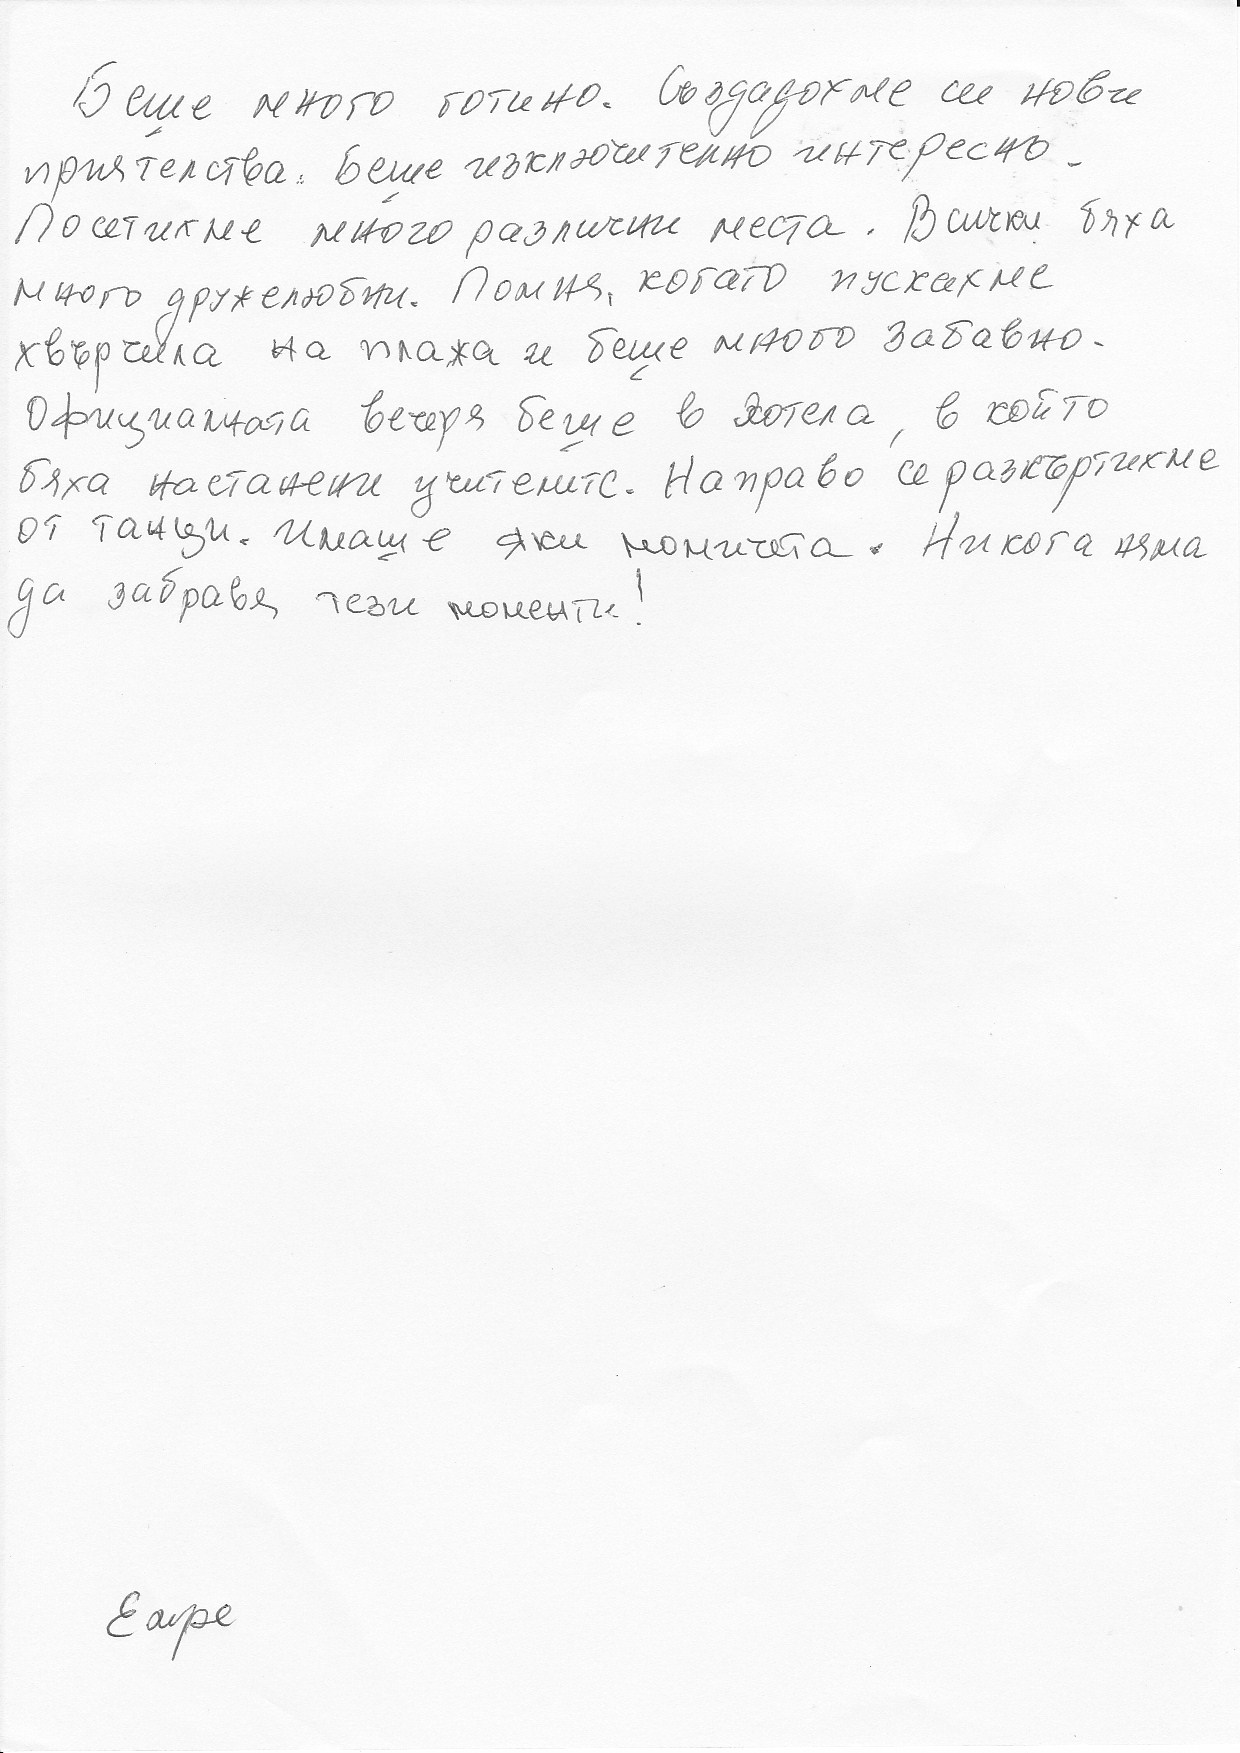 Беше много готино. Създадохме си нови
приятелства. Беше изключително интересно.
Посетихме много различни места. Всички бяха
много дружелюбни. Помня, когато пускахме
хвърчила на плажа и беше много забавно.
Официалната вечеря беше в хотела, в който
бяха настанени учителите. Направо се разкъртихме
от танци. Имаше яки момичета. Никога няма
да забравя тези моменти!